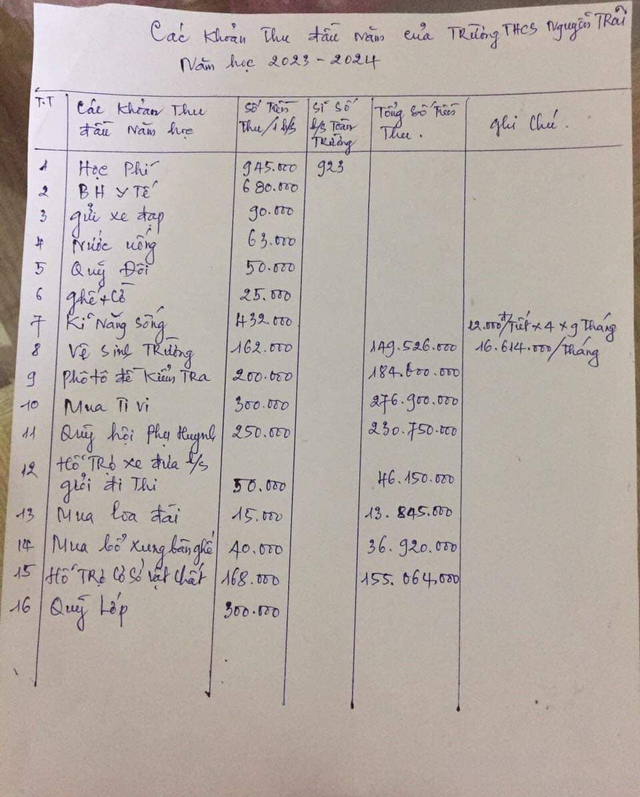 Các Khoản Thu đầu năm của Trường THCS Nguyễn Trãi
Năm học 2023 - 2024
T.T Các Khoản Thu đầu năm học Số Tiền Thu/1 h/s Sĩ Số h/s Toàn Trường Tổng Số Tiền Thu. Ghi Chú.
1 Học Phí 945.000 923
2 BH y Tế 680.000
3 gửi xe đạp 90.000
4 Nước uống 63.000
5 Quỹ Đội 50.000
6 ghế + Cờ 25.000
7 Kĩ Năng Sống 432.000 12.000đ/Tiết x 4 x 9 Tháng
8 Vệ Sinh Trường 162.000 149.526.000 16.614.000/Tháng
9 Phô tô đề Kiểm Tra 200.000 184.600.000
10 Mua Ti vi 300.000 276.900.000
11 Quỹ hội Phụ Huynh 250.000 230.750.000
12 Hỗ Trợ xe đưa h/s
giỏi đi Thi 50.000 46.150.000
13 Mua loa đài 15.000 13.845.000
14 Mua bổ xung bàn ghế 40.000 36.920.000
15 Hỗ Trợ Cơ Sở vật Chất 168.000 155.064.000
16 Quỹ Lớp 300.000